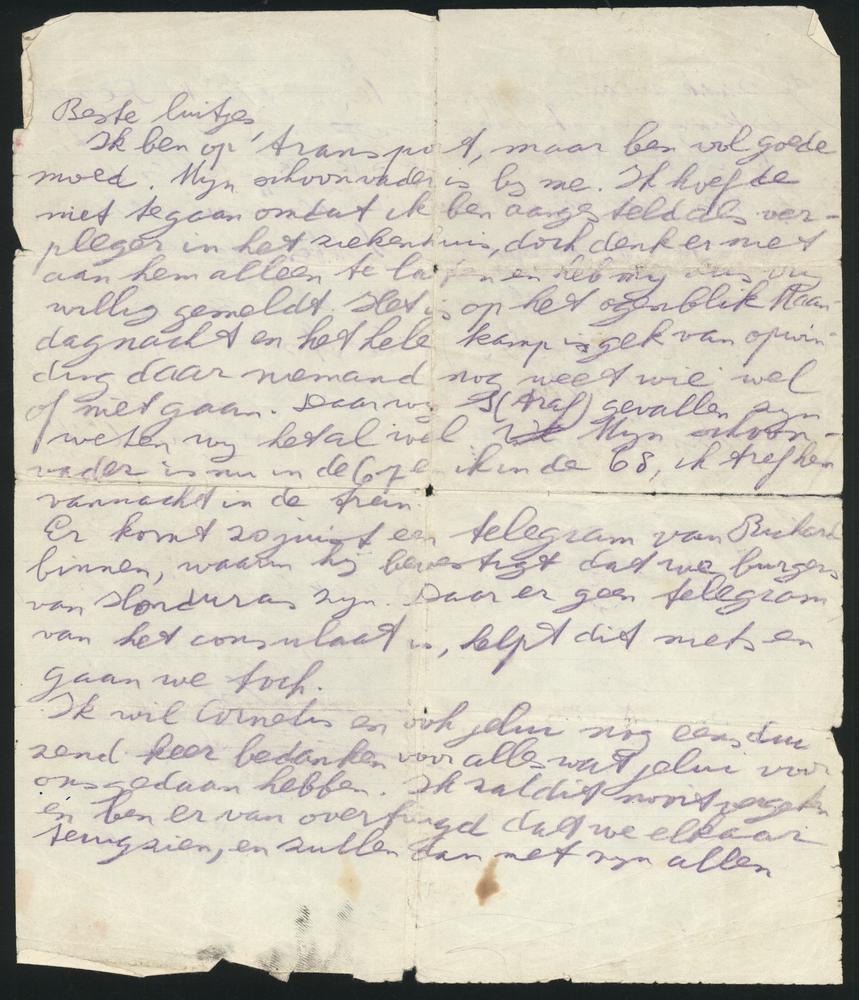 Beste luitjes
Ik ben op transport, maar ben vol goede
moed. Myn schoonvader is by me. Ik hoefde
niet tegaan omdat ik ben aangesteld als ver-
pleger in het ziekenhuis, doch denk er niet
aan hem alleen te laten en heb my dus vry
willig gemeldt. Het is op het ogenblik Maan-
dagnacht en het hele kamp is gek van opwin-
ding daar niemand nog weet wie wel
of niet gaan. Daar wy S(traf) gevallen zyn
weten wy het al wel Myn schoon-
vader is nu in de 67 en ik in de 68, ik tref hem
vannacht in de trein.
Er komt zojuist een telegram van Richard
binnen, waarin hy bevestigt dat we burgers
van Honduras zyn. Daar er geen telegram
van het consulaat is, helpt dit niets en
gaan we toch.
Ik wil Cornelis en ook jelui nog eens dui
zend keer bedanken voor alles wat jelui voor
ons gedaan hebben. Ik zal dit nooit vergeten
en ben er van overtuigd dat we elkaar
terugzien, en zullen dan met zyn allen